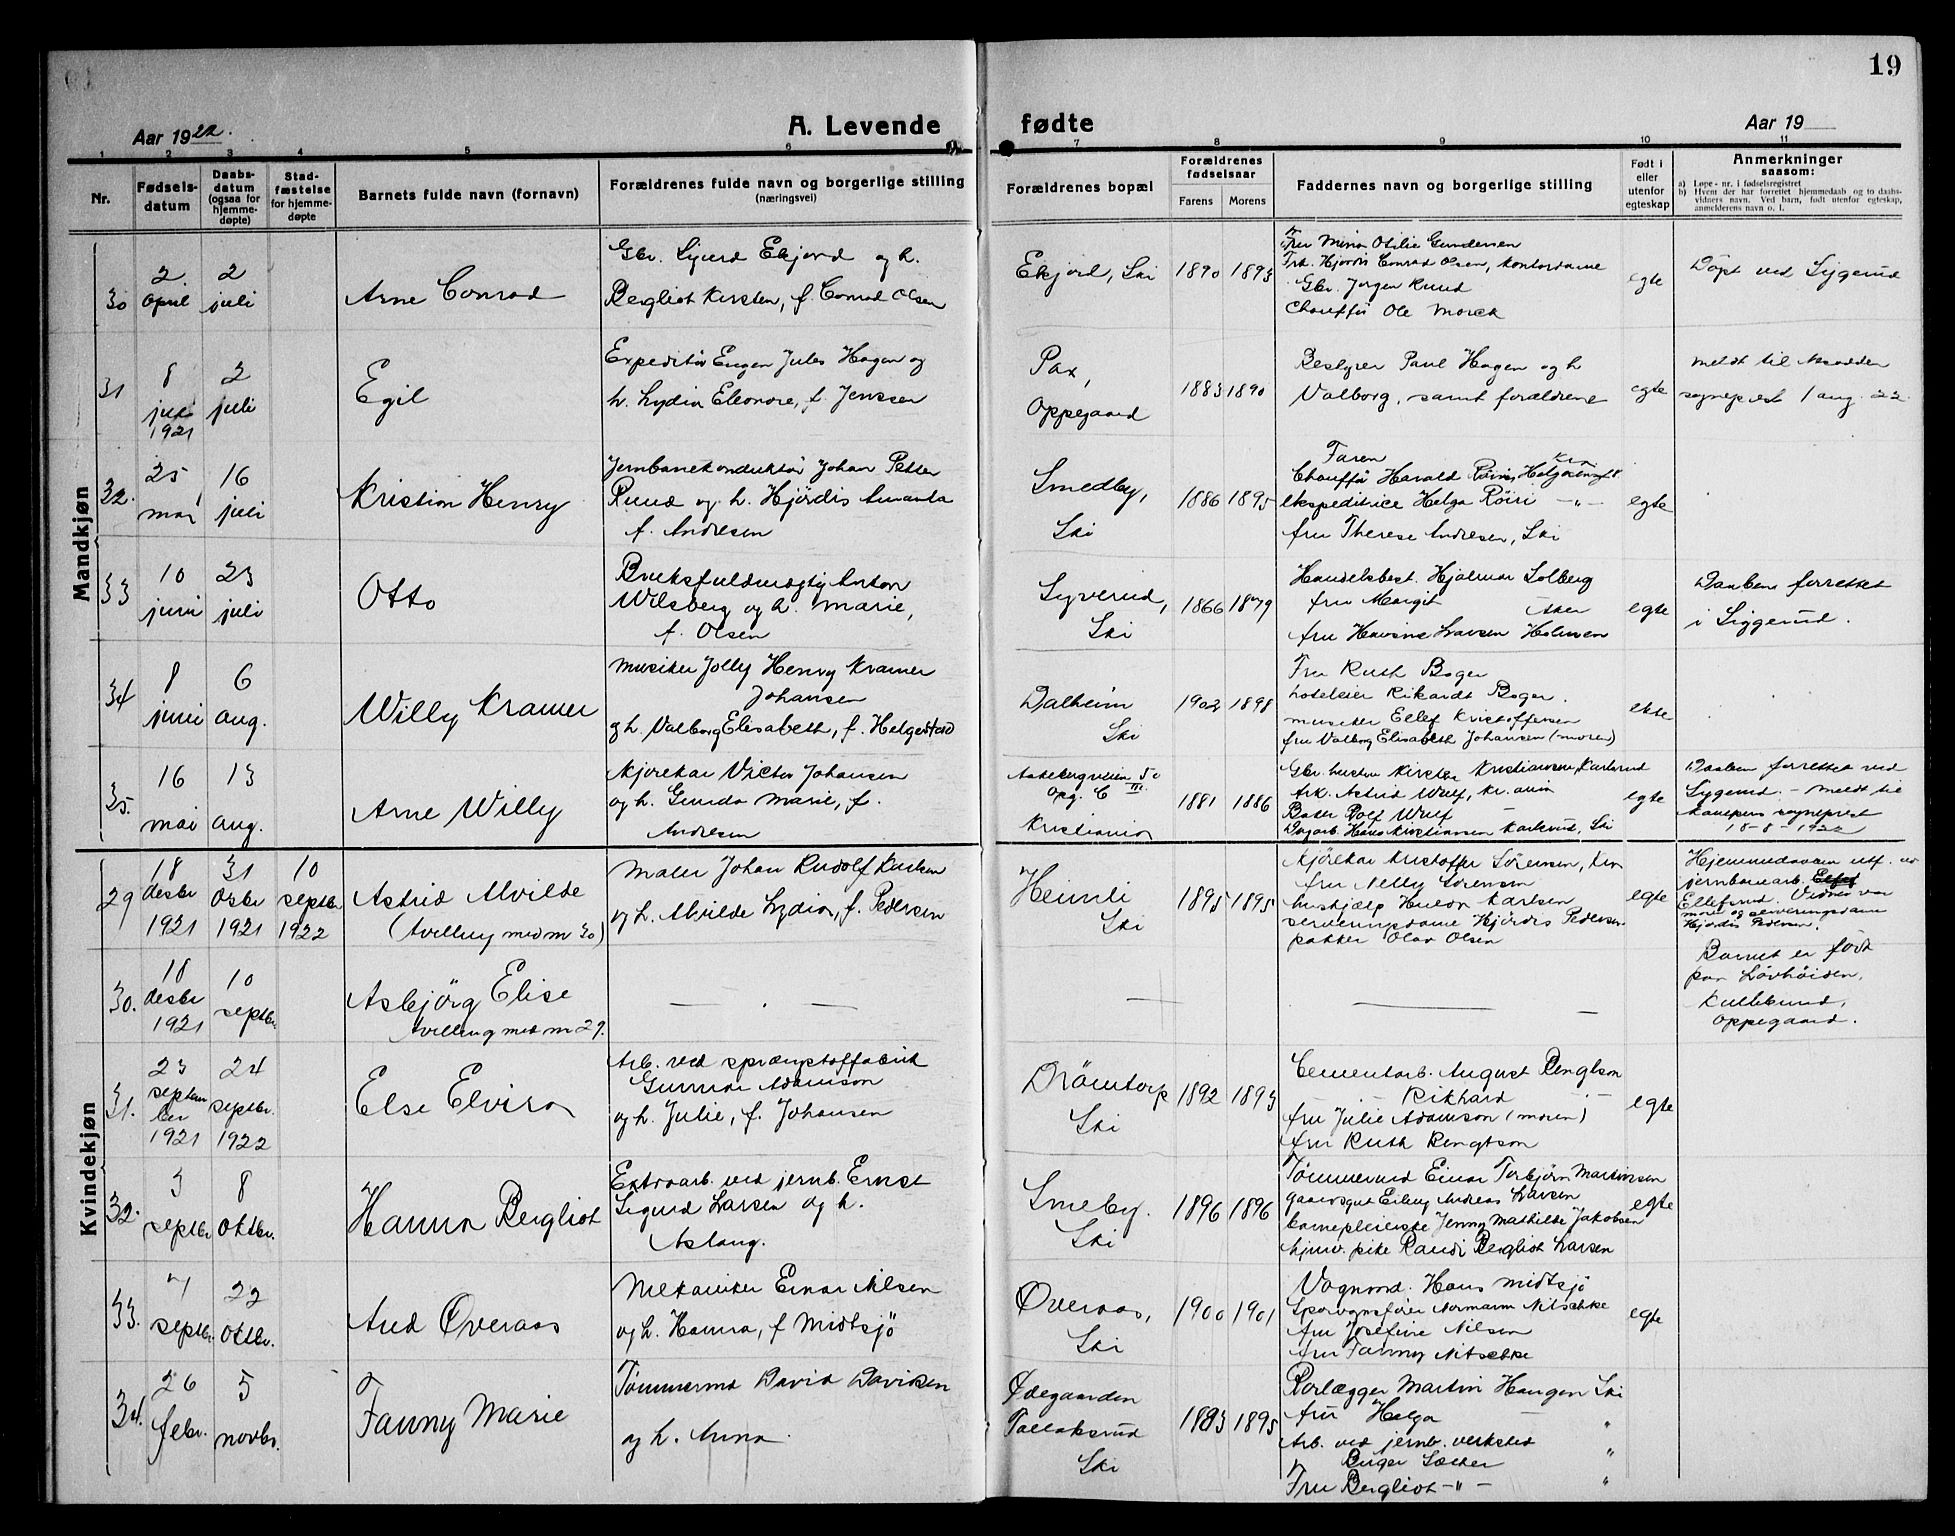 19
Aar 1922.
A. Levende fødte
Aar 19
1 2 3 4 5 6 7 8 9 10 11
Nr.
Fødsels-
datum
Daabs-
datum
(ogsaa for
hjemme-
døpte)
Stad-
fæstelse
for hjemme-
døpte
Barnets fulde navn (fornavn)
Forældrenes fulde navn og borgerlige stilling
(næringsvei)
Forældrenes bopæl
Forældrenes
fødselsaar
Farens Morens
Faddernes navn og borgerlige stilling
Født i
eller
utenfor
egteskap
Anmerkninger
saasom:
a) Løpe-nr. i fødselsregistret
b) Hvem der har forrettet hjemmedaab og to daabs-
vidners navn. Ved barn, født utenfor egteskap,
anmelderens navn o. l.
Mandkjøn
30
2
april
2
juli
Arne Conrad
Gbr. Sigurd Ekjord og h.
Bergliot Kirsten, f. Conrad Olsen
Ekjord, Ski
1890 1893
Fru Mina Otilie Gundersen
Frk. Hjordis Conrad Olsen, kontordame
Gbr. Jørgen Ruud
Chauffør Ole Morck
egte
Døpt ved Siggerud
31
8
1921
2
juli
Egil
Expeditør Eugen Jules Hagen og
h. Lydia Eleonore, f. Jenssen
Pax,
Oppegaard
1883 1890
Bestyrer Paul Hagen og h
Valborg, samt forældrene
egte
meldt til
sogneprest 1 aug. 22.
32.
25
mai
16
juli
Kristian Henry
Jernbanekonduktør Johan Petter
Ruud og h. Hjørdis Amanda
f. Andresen
Smedby,
Ski
1886 1895
Faren
Chauffør Harald Røisi,
Ekspeditrice Helga Røisi -"-
fru Therese Andresen, Ski
egte
33
10
juni
23
juli
Otto
Bruksfuldmægtig Anton
Wilsberg og h. Marie,
f. Olsen
Syverud,
Ski
1866 1879
Handelsbest. Hjalmar Solberg
fru Margit Aker
fru Larsen Holmen
egte
Daaben forrettet
i Siggerud.
34
8
juni
6
aug.
Willy Kramer
Musiker Jolly Henry Kramer
Johansen
og h. Valborg Elisabeth, f. Helgestad
Dalheim
Ski
1902 1898
Fru Ruth Boger
hoteleier Rikardt Boger.
musiker Ellef Kristoffersen
fru Valborg Elisabeth Johansen (moren)
ekte
35.
16
mai
13
aug.
Arne Willy
Kjørekar Victor Johansen
og h. Gunda Marie, f.
Andresen
Aakebergveien 50
Opg. C III.
Kristiania
1881 1886
Gbr. hustru Kirsten Kristiansen, Karlsrud
Frk. Astrid Wulf, Kr.ania
Bater Rolf Wulf
Dagarb. Hans Kristiansen Karlsrud, Ski
egte
Daaben forrettet ved
Sygerud. - meldt til
Kampens sogneprest
18-8-1922
Kvindekjøn
29
18
desbr
1921
31
1921
10
septbr
1922
Astrid Alvilde
(tvilling med nr 30)
Maler Johan Rudolf Karlsen
og h. Alvilde Lydia, f. Pedersen
Heimli
Ski
1895 1895
Kjørekar Kristoffer Sørensen, Kra
fru Nelly Sørensen
hushjælp Karlsen
serveringsdame Hjørdis Pedersen
pakker Olav Olsen
egte
Hjemmedaaben utf. av
jernbanearb.
Ellefsrud. Vidner var
mor og serveringsdame
Hjørdis Pedersen.
30.
18
desbr
1921
10
septbr.
Asbjørg Elise
tvilling med nr 29.
— . —
—
— —
Barnet er født
paa Løvhøiden,
Kullebund,
Oppegaard.
31.
23
septem
ber
1921
24
septbr.
1922
Else Elvira
Arb. ved sprængstoffabrik
Gunnar Adamson
og h. Julie, f. Johansen
Drömtorp
Ski
1892 1893
Cementarb. August Bengtson
-.- Rikhard -.-
fru Julie Adamson (moren)
fru Ruth Bengtson
egte
32.
3
septbr
8
oktbr.
Hanna Bergliot
Extraarb. ved jernb. Ernst
Sigurd Larsen og h.
Aslaug.
Smeby.
Ski
1896 1896
Tømmermd Einar Torbjørn Martinsen
gaardsgut Erling Andreas Larsen
barnepleierske Jenny Mathilde Jakobsen
hjemv. pike Randi Bergliot Larsen
egte
33.
7
septbr.
22
oktbr.
Aud Øveraas
Mekaniker Einar Nilsen
og h. Hanna, f. Midtsjö
Øveraas,
Ski
1900 1901
Vognmd. Hans Midtsjö
Sporvognsfører Normann Nitschke
fru Josefine Nilsen
fru Fanny Nitschke
egte
34.
26
febr.
5
novbr.
Fanny Marie
Tømmermd David Davidsen
og h. Anna.
Ødegaarden
Tallaksrud
Ski
1893 1895
Rørlægger Martin Haugen Ski
fru Helga — "
Arb. ved jernb. verksted
Birger Sæther "
Fru Bergliot -"- "